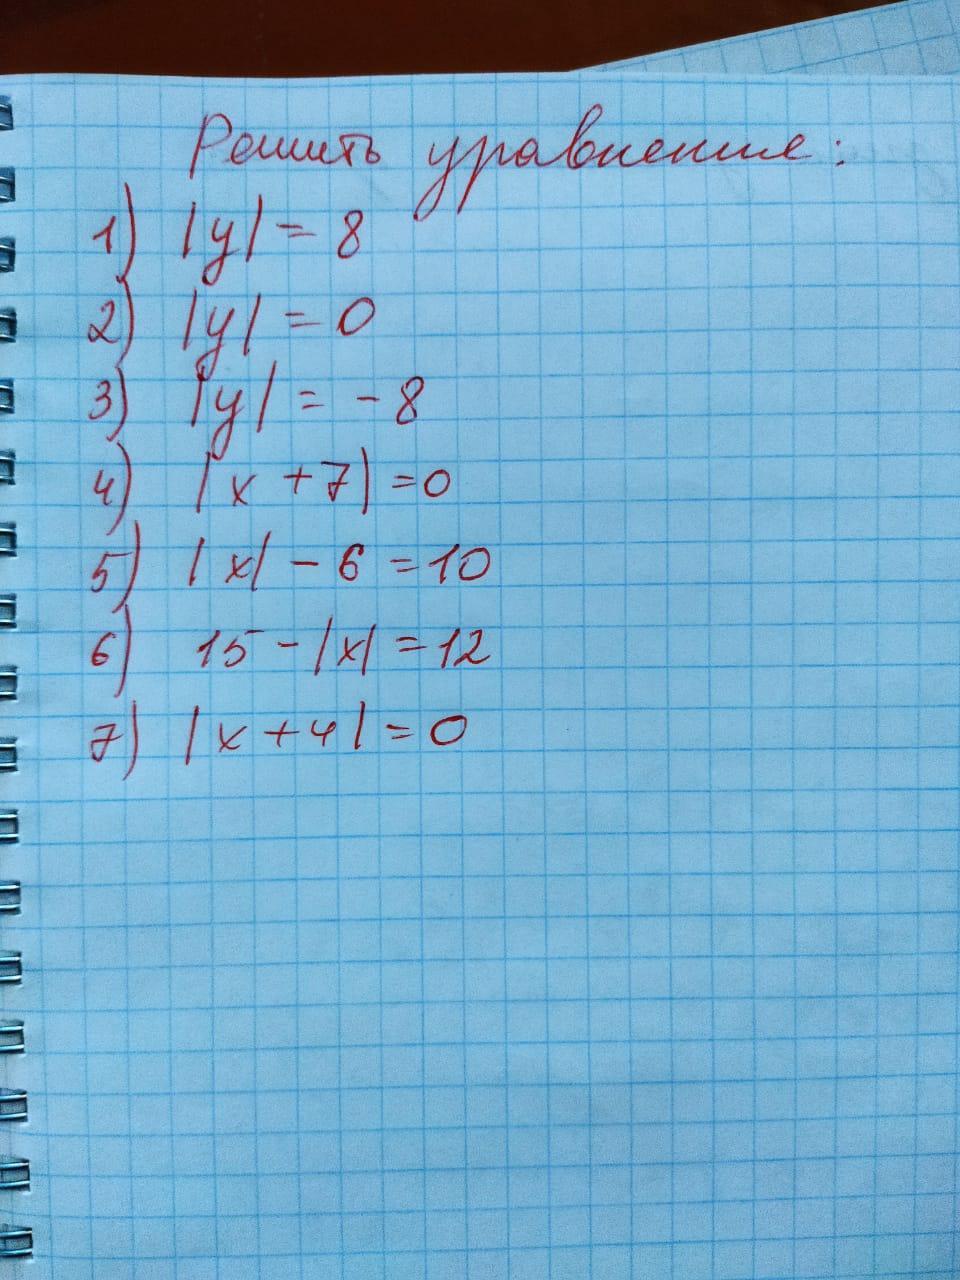 Решить уравнение:
1) |y| = 8
2) |y| = 0
3) |y| = -8
4) |x + 7| = 0
5) |x| - 6 = 10
6) 15 - |x| = 12
7) |x + 4| = 0